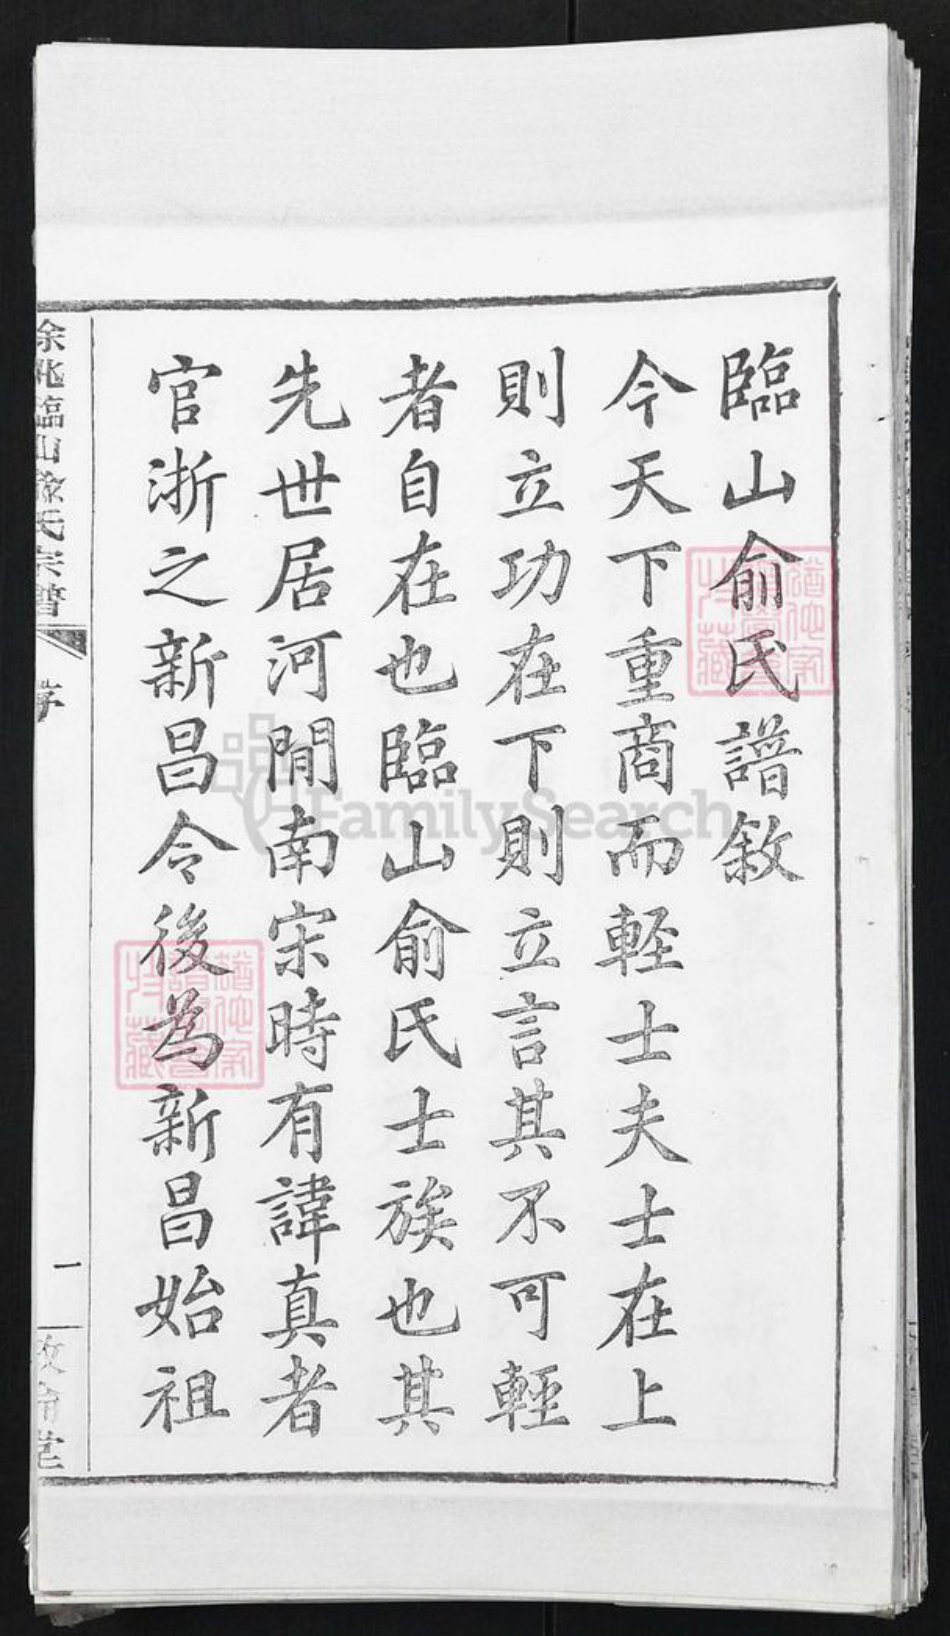 臨山俞氏譜敘
今天下重商而軽士夫士在上
則立功在下則立言其不可輕
者自在也臨山俞氏士族也其
先世居河間南宋時有諱真者
官浙之新昌令後為新昌始祖
余姚臨山俞氏宗譜
序
一
敦倫堂
FamilySearch